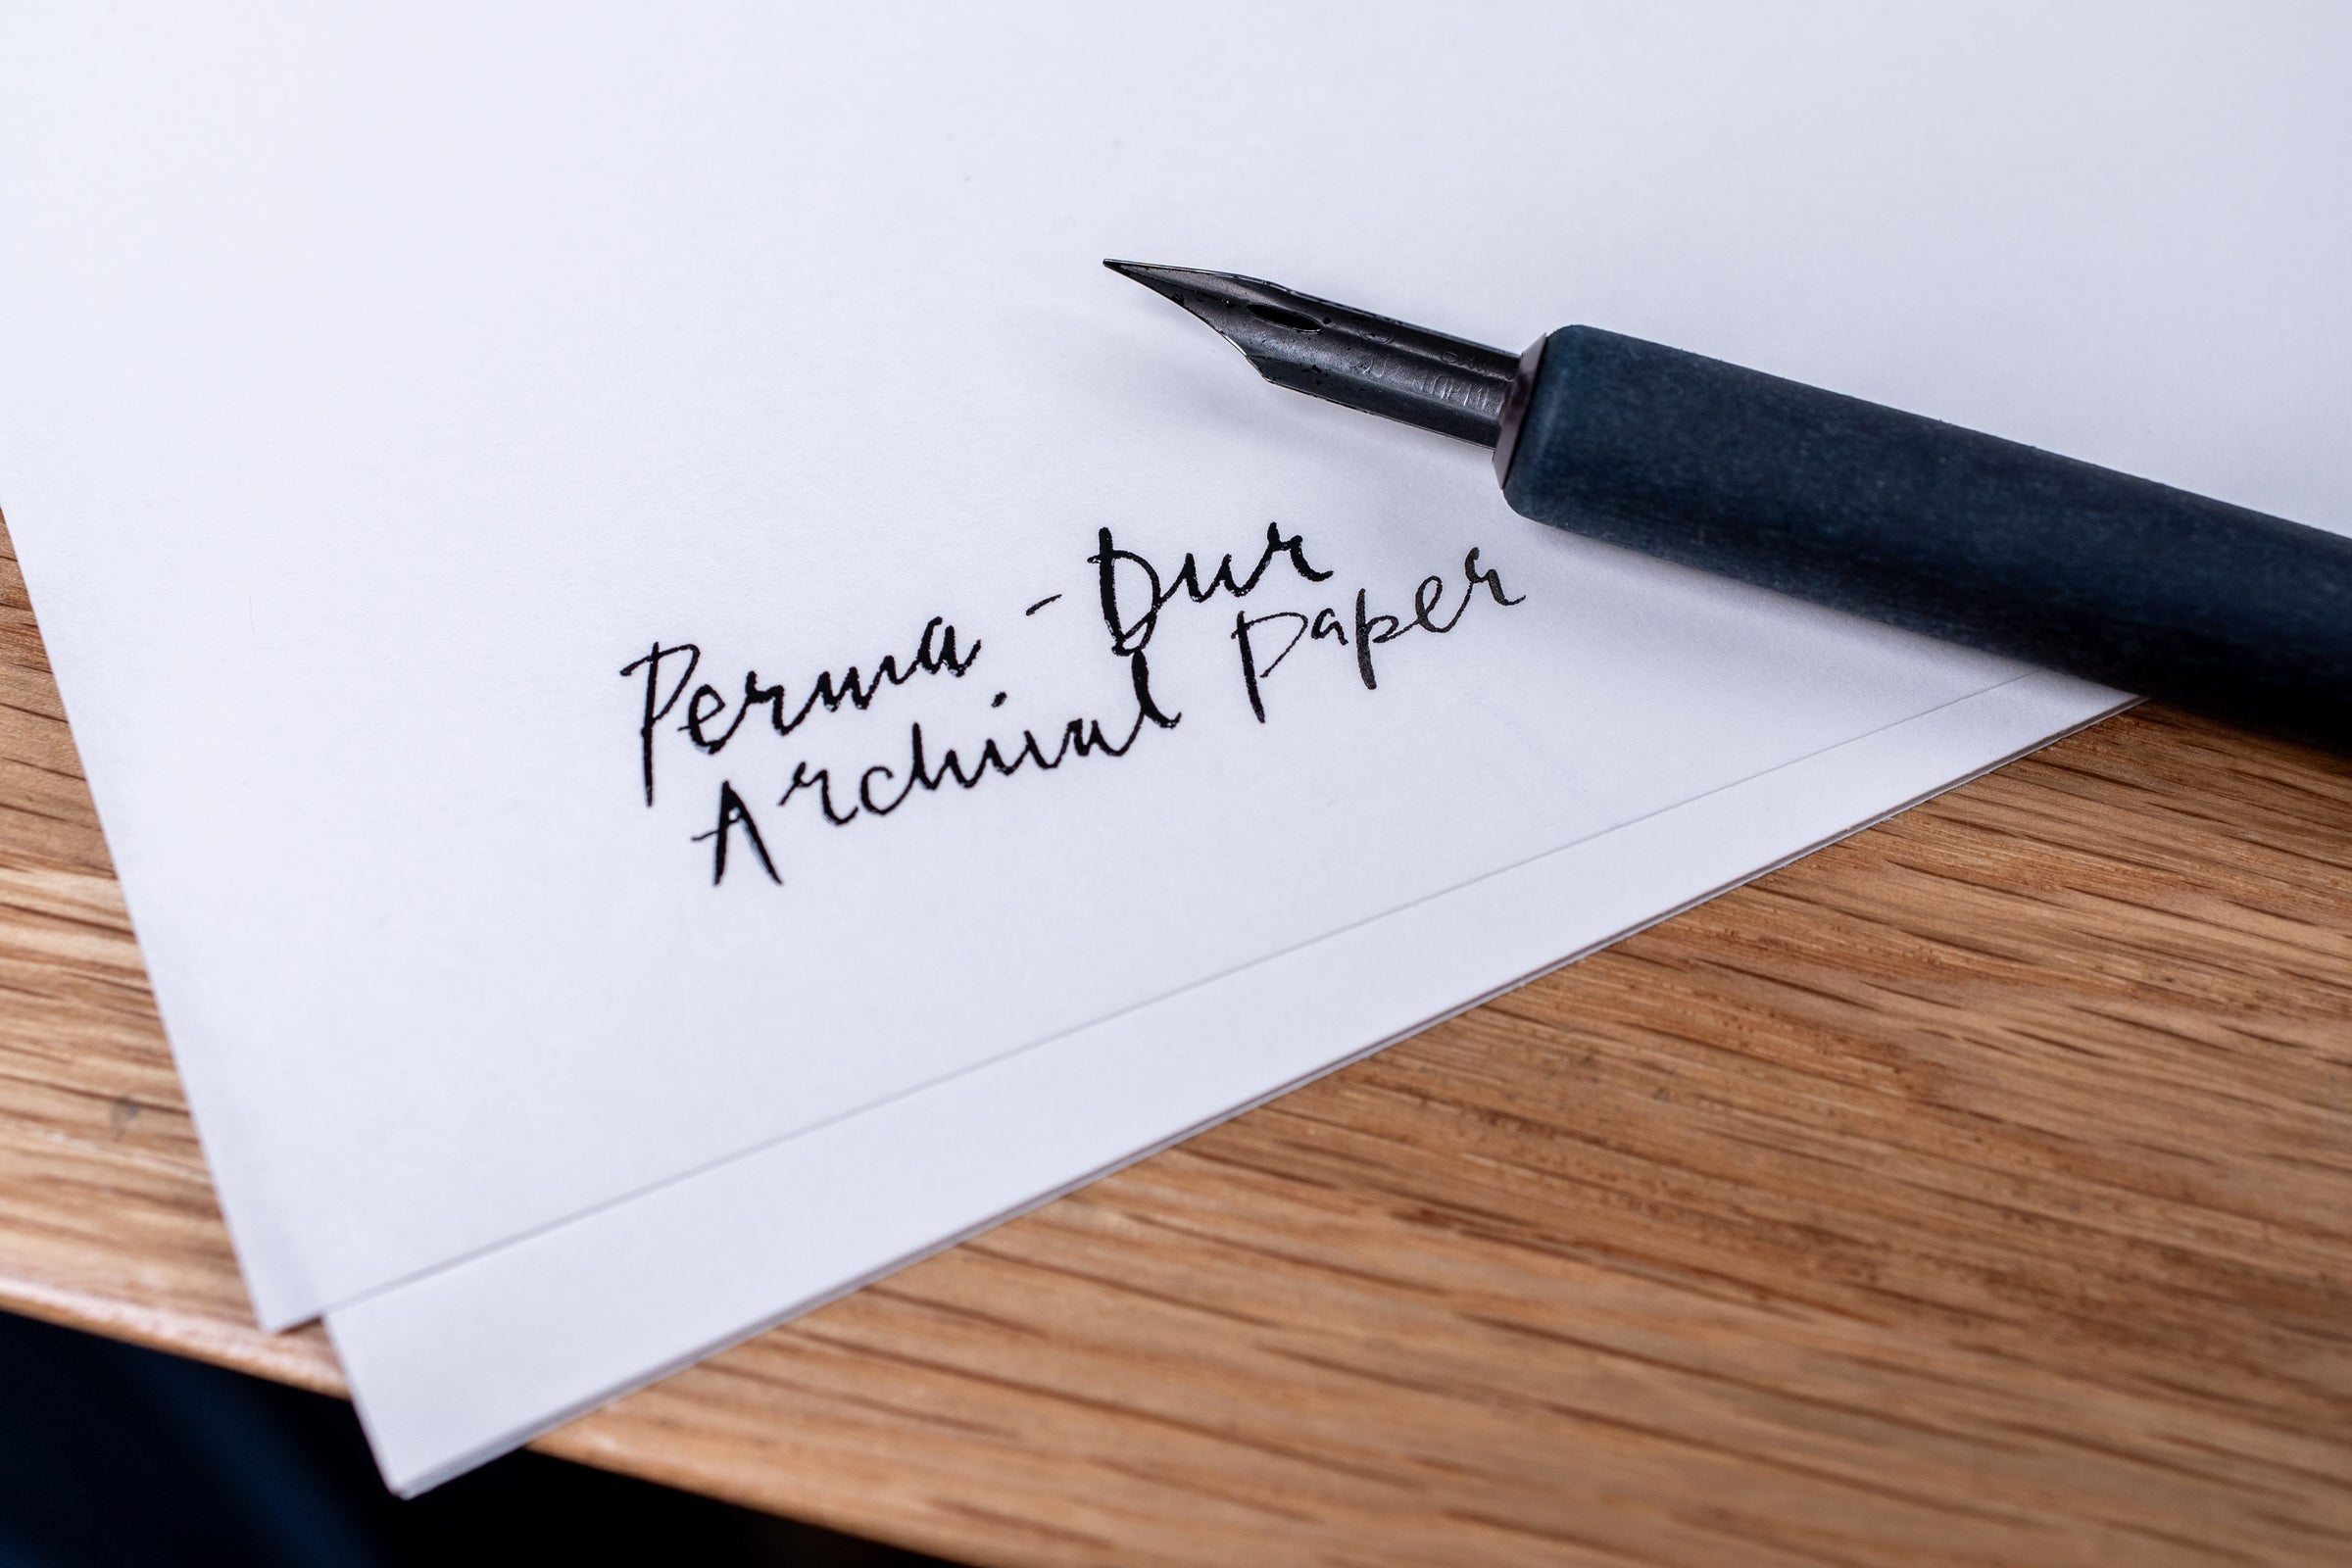 Perma - Dur
Archival Paper